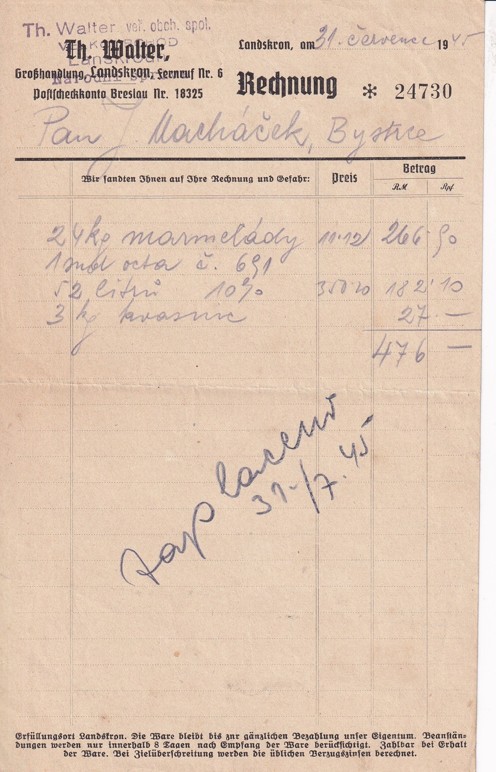 Th. Walter veř. obch. spol.
Lanškroun
Th. Walter,
Großhandlung, Landskron, Fernruf Nr. 6
Postscheckkonto Breslau Nr. 18325
Landskron, am 31. července 1945
Rechnung * 24730
Pan J. Macháček, Bystre
Wir sandten Ihnen auf Ihre Rechnung und Gefahr: Preis Betrag
RM Rpf
24 kg marmelády 11·12 266·90
1 sud octa č. 691
52 litrů 10% 350·20 182·10
3 kg kvasnic 27 —
476 —
zaplaceno
31./7. 45
Erfüllungsort Landskron. Die Ware bleibt bis zur gänzlichen Bezahlung unser Eigentum. Beanstän-
dungen werden nur innerhalb 8 Tagen nach Empfang der Ware berücksichtigt. Zahlbar bei Erhalt
der Ware. Bei Zielüberschreitung werden die üblichen Verzugszinsen berechnet.